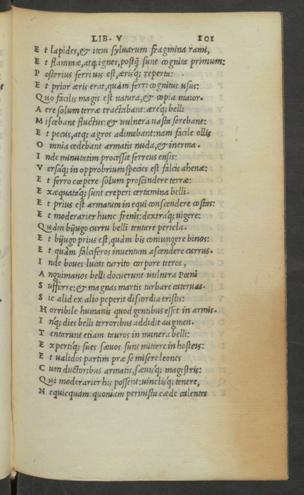 LIB. V 101
E t lapides, & item syluarum fragmina rami,
E t flammæ, atq; ignes, postq̃ sunt cognita primum:
P osterius ferri uis est, ærisq; reperta:
E t prior æris erat, quàm ferri cognitus usus:
Q uo facilis magis est natura, & copia maior.
A ere solum terræ tractabant: æreq; belli
M iscebant fluctus: & uulnera uasta serebant:
E t pecus, atq; agros adimebant: nam facile ollis
O mnia cedebant armatis nuda, & inerma.
I nde minutatim processit ferreus ensis:
V ersaq; in opprobrium species est falcis ahenæ:
E t ferro cœpere solum proscindere terræ:
E xæquataq; sunt creperi certamina belli.
E t prius est armatum in equi conscendere costas:
E t moderarier hunc frenis: dextraq; uigere:
Q uàm biiugo curru belli tentare pericla.
E t biiugo prius est, quàm bis coniungere binos:
E t quàm falciferos inuentum ascendere currus.
I nde boues lucas turrito corpore tetros,
A nguimanos belli docuerunt uulnera Pœni
S ufferre: & magnas martis turbare cateruas.
S ic alid ex alio peperit discordia tristis:
H orribile humanis quod gentibus esset in armis.
I nq; dies belli terroribus addidit augmen.
T entarunt etiam tauros in munere belli:
E xpertiq; sues sæuos sunt mittere in hosteis:
E t ualidos partim præ se misere leones
C um ductoribus armatis, sæuisq; magistris:
Q ui moderarier his possent: uinclisq; tenere,
N equicquam: quoniam permista cæde calentes